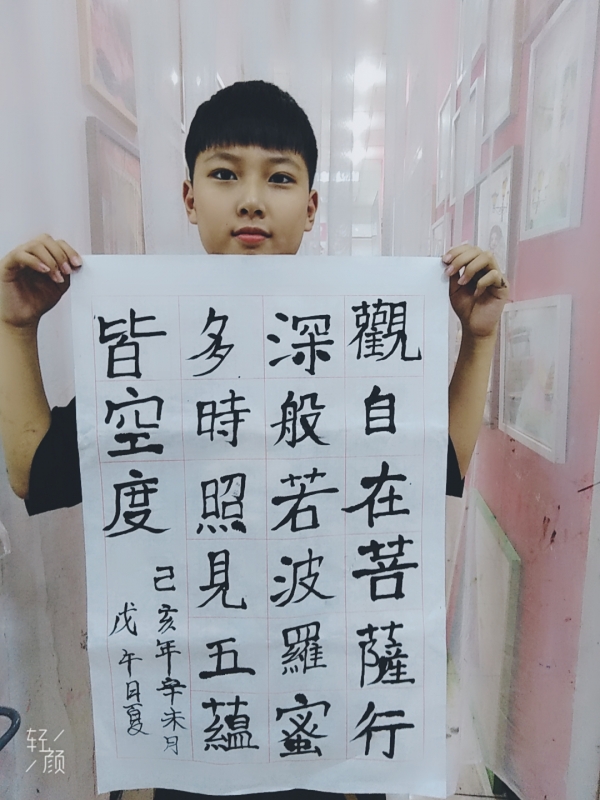 觀自在菩薩行
深般若波羅蜜
多時照見五蘊
皆空度
己亥年辛未月
戊午日夏
轻颜